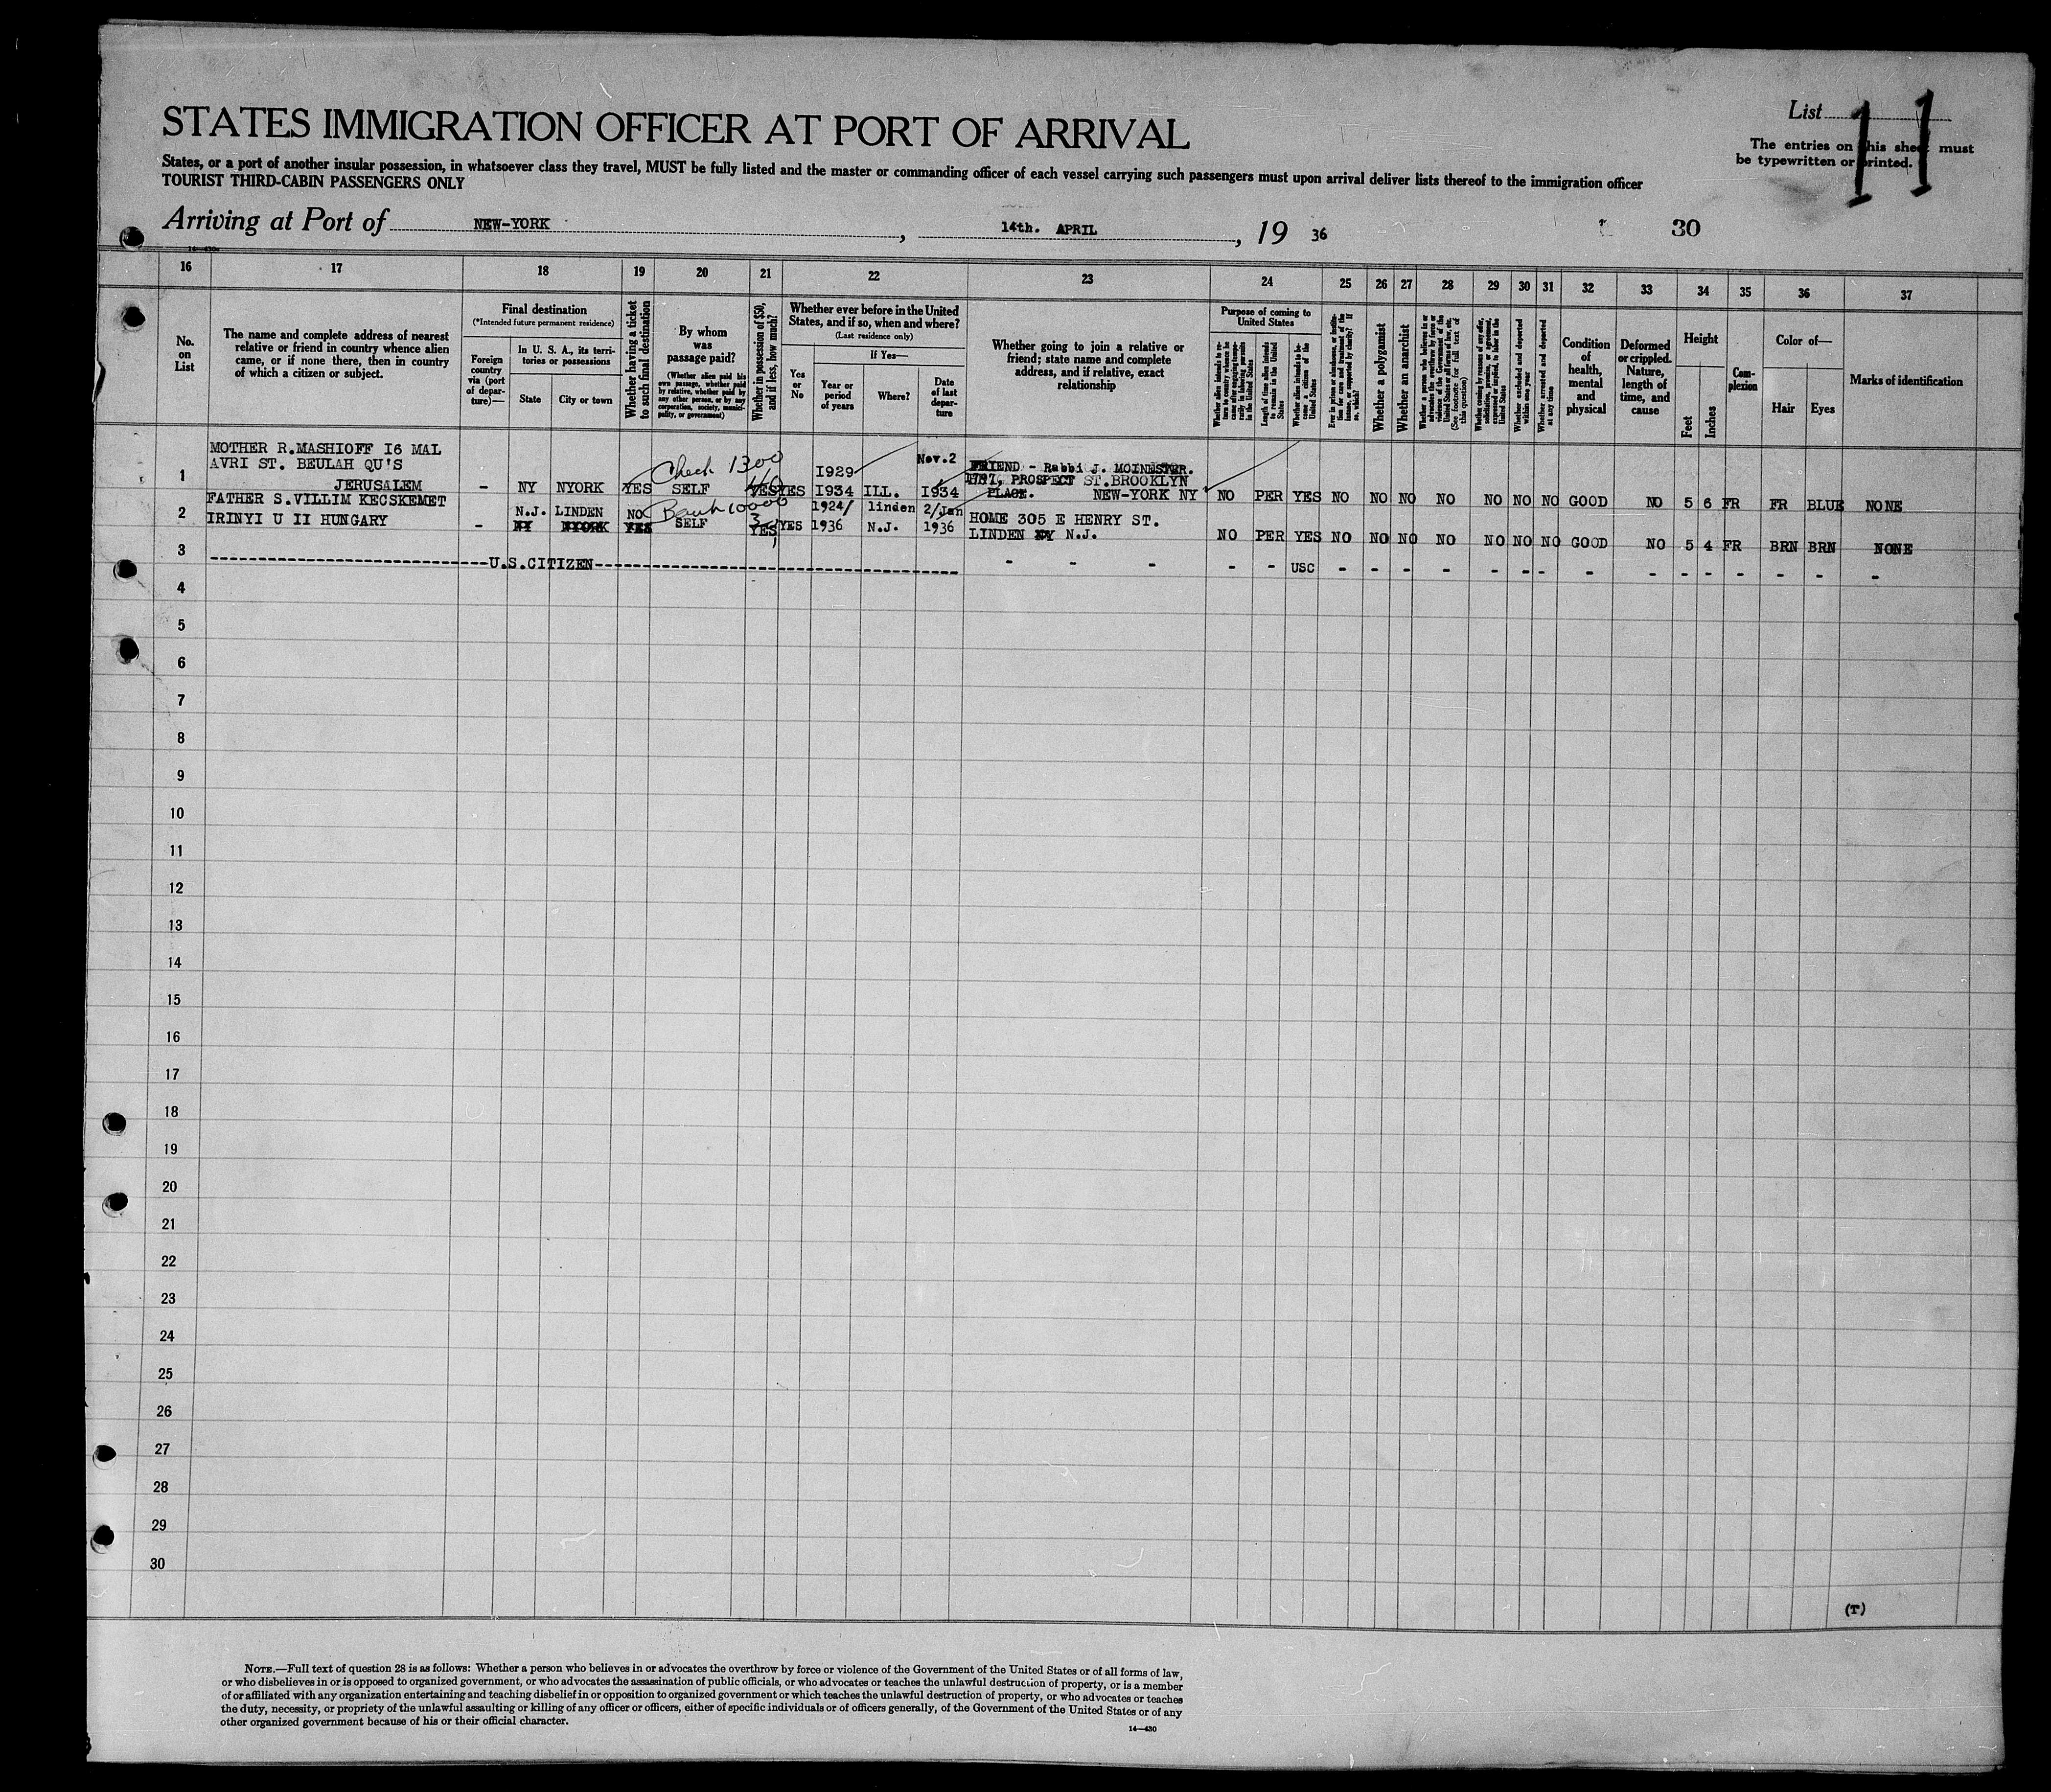 STATES IMMIGRATION OFFICER AT PORT OF ARRIVAL
List 11
The entries on this sheet must
be typewritten or printed.
States, or a port of another insular possession, in whatsoever class they travel, MUST be fully listed and the master or commanding officer of each vessel carrying such passengers must upon arrival deliver lists thereof to the immigration officer
TOURIST THIRD-CABIN PASSENGERS ONLY
Arriving at Port of NEW-YORK, 14th. APRIL, 19 36 30
16 17 18 19 20 21 22 23 24 25 26 27 28 29 30 31 32 33 34 35 36 37
No. on List
The name and complete address of nearest relative or friend in country whence alien came, or if none there, then in country of which a citizen or subject.
Final destination
(*Intended future permanent residence)
Foreign country via (port of departure)—
In U. S. A., its territories or possessions
State
City or town
Whether having a ticket to such final destination
By whom was passage paid?
(Whether alien paid his own passage, whether paid by relative, whether paid by any other person, or by any corporation, society, municipality, or government)
Whether in possession of $50, and if less, how much?
Whether ever before in the United States, and if so, when and where?
(Last residence only)
Yes or No
If Yes—
Year or period of years
Where?
Date of last departure
Whether going to join a relative or friend; state name and complete address, and if relative, exact relationship
Purpose of coming to United States
Whether alien intends to return to country whence he came after engaging temporarily in laboring pursuits in the United States
Length of time alien intends to remain in the United States
Whether alien intends to become a citizen of the United States
Ever in prison or almshouse, or institution for care and treatment of the insane, or supported by charity? If so, which?
Whether a polygamist
Whether an anarchist
Whether a person who believes in or advocates the overthrow by force or violence of the Government of the United States or all forms of law, etc. (See footnote for full text of this question)
Whether coming by reason of any offer, solicitation, promise, or agreement, expressed or implied, to labor in the United States
Whether excluded and deported within one year
Whether arrested and deported at any time
Condition of health, mental and physical
Deformed or crippled. Nature, length of time, and cause
Height
Feet
Inches
Complexion
Color of—
Hair
Eyes
Marks of identification
MOTHER R.MASHIOFF I6 MAL
AVRI ST. BEULAH QU'S
Check 1300
I929
Nov.2
FRIEND - Rabbi J. MOINESTER.
PROSPECT ST.BROOKLYN
1 JERUSALEM - NY NYORK YES SELF YES YES I934 ILL. I934 PLACE. NEW-YORK NY NO PER YES NO NO NO NO NO NO NO GOOD NO 5 6 FR FR BLUE NONE
FATHER S.VILLIM KECSKEMET N.J. LINDEN NO Bank 10000 1924/ linden 2/Jan
2 IRINYI U II HUNGARY - NY NYORK YES SELF YES YES 1936 N.J. 1936 HOME 305 E HENRY ST.
LINDEN NY N.J. NO PER YES NO NO NO NO NO NO NO GOOD NO 5 4 FR BRN BRN NONE
3 ----U.S.CITIZEN---- - - - - - USC - - - - - - - - - - - - - - -
4
5
6
7
8
9
10
11
12
13
14
15
16
17
18
19
20
21
22
23
24
25
26
27
28
29
30
(T)
NOTE.—Full text of question 28 is as follows: Whether a person who believes in or advocates the overthrow by force or violence of the Government of the United States or of all forms of law,
or who disbelieves in or is opposed to organized government, or who advocates the assassination of public officials, or who advocates or teaches the unlawful destruction of property, or is a member
of or affiliated with any organization entertaining and teaching disbelief in or opposition to organized government or which teaches the unlawful destruction of property, or who advocates or teaches
the duty, necessity, or propriety of the unlawful assaulting or killing of any officer or officers, either of specific individuals or of officers generally, of the Government of the United States or of any
other organized government because of his or their official character.
14—430